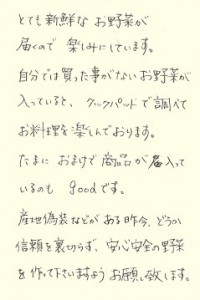 とても新鮮な お野菜が
届くので 楽しみにしています。
自分では買った事がないお野菜が
入っていると、クックパットで調べて
お料理を楽しんでおります。
たまに おまけで商品が 入って
いるのも goodです。
産地偽装などがある昨今、どうか
信頼を裏切らず、安心安全の野菜
を作って下さいますようお願い致します。